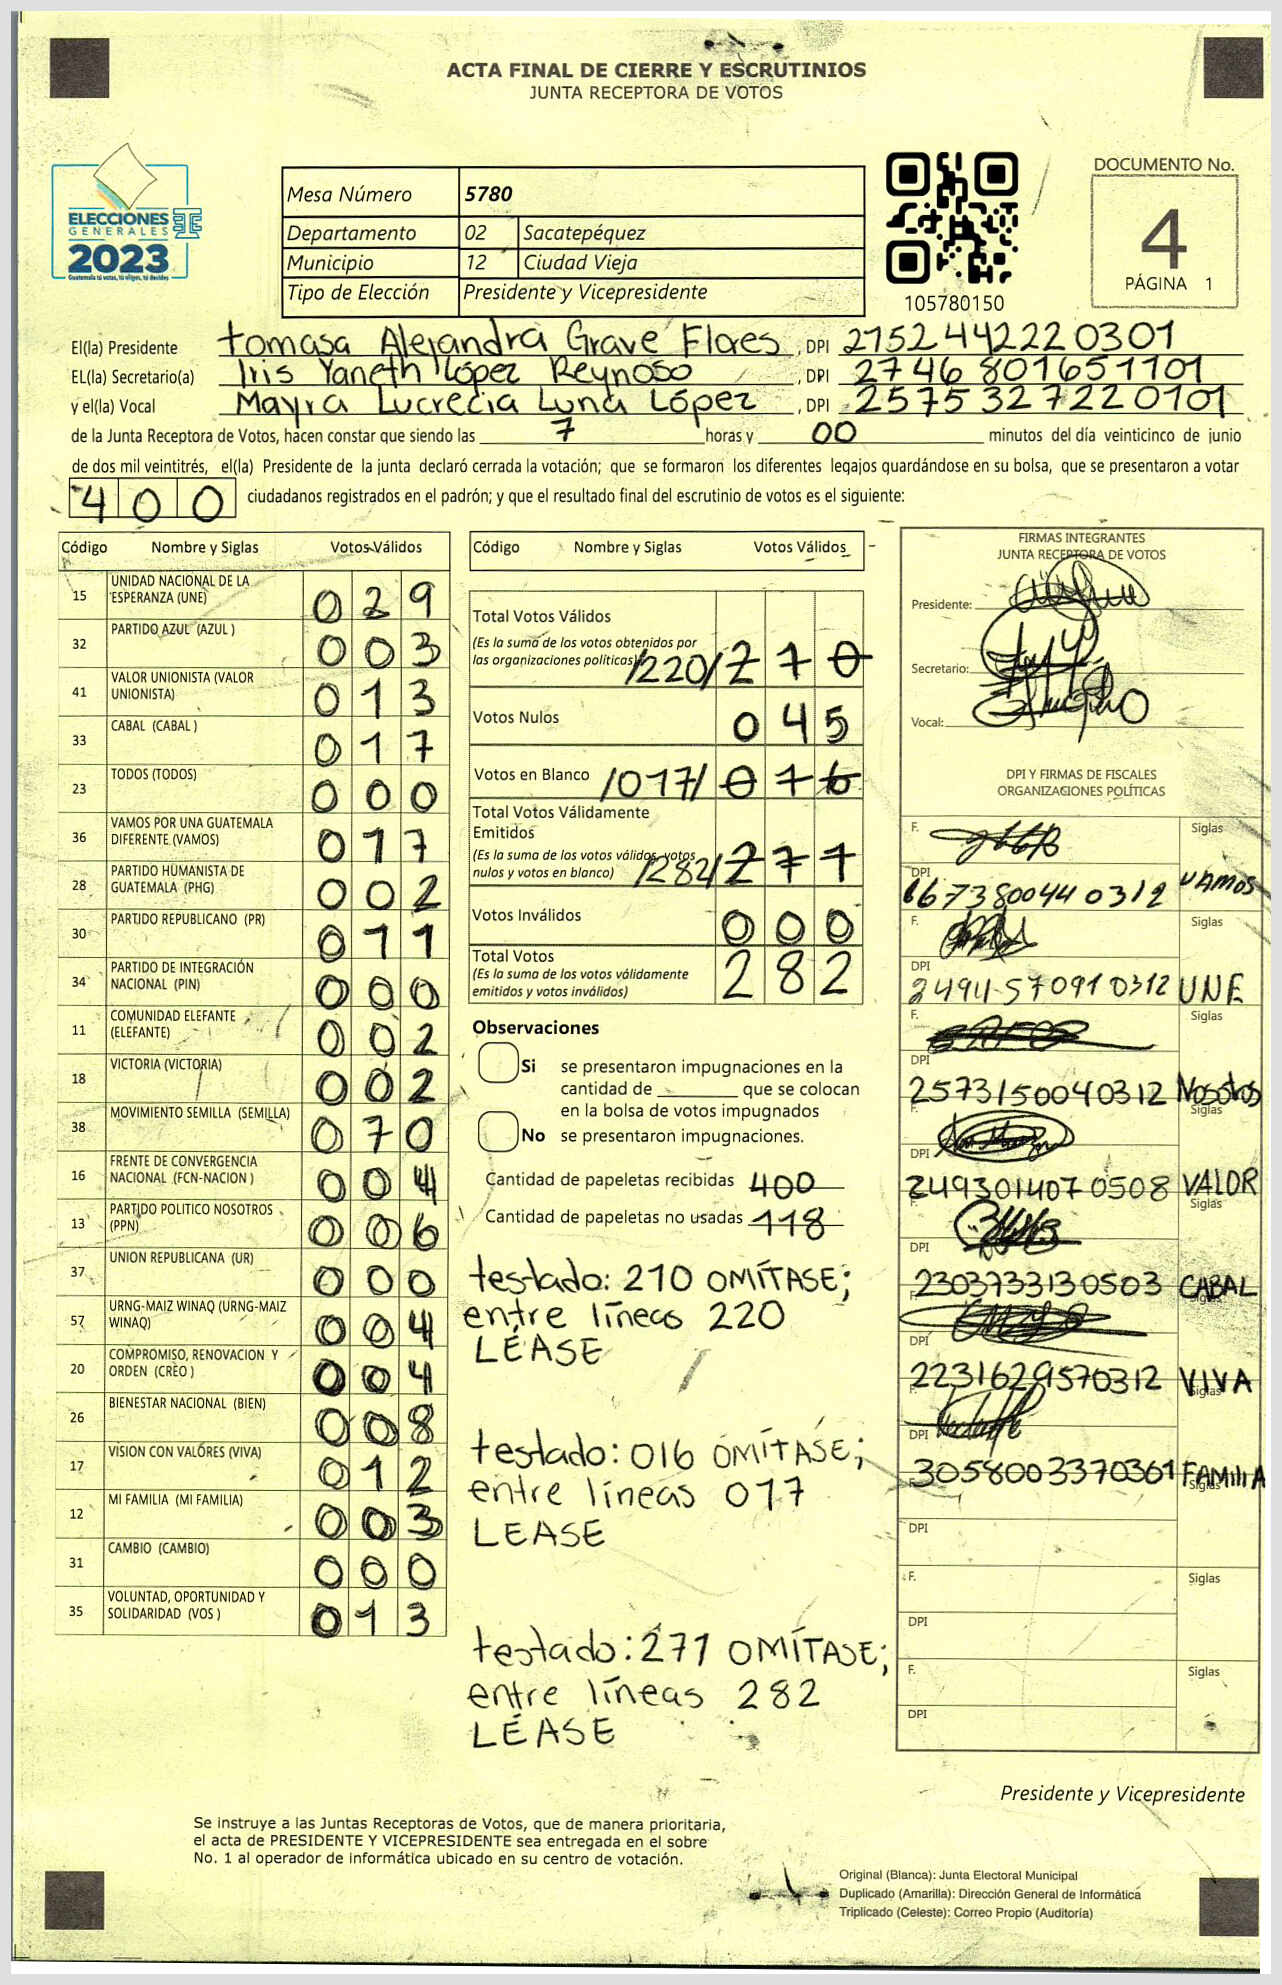 ACTA FINAL DE CIERRE Y ESCRUTINIOS
JUNTA RECEPTORA DE VOTOS
ELECCIONES
GENERALES
2023
Guatemala tú votas, tú eliges, tú decides
Mesa Número 5780
Departamento 02 Sacatepéquez
Municipio 12 Ciudad Vieja
Tipo de Elección Presidente y Vicepresidente
105780150
DOCUMENTO No.
4
PÁGINA 1
El(la) Presidente tomasa Alejandra Grave Flores, DPI 2752442220301
EL(la) Secretario(a) Iris Yaneth López Reynoso, DPI 2746801651101
y el(la) Vocal Mayra Lucrecia Luna López, DPI 2575327220101
de la Junta Receptora de Votos, hacen constar que siendo las 7 horas y 00 minutos del día veinticinco de junio
de dos mil veintitrés, el(la) Presidente de la junta declaró cerrada la votación; que se formaron los diferentes legajos guardándose en su bolsa, que se presentaron a votar
400 ciudadanos registrados en el padrón; y que el resultado final del escrutinio de votos es el siguiente:
Código Nombre y Siglas Votos Válidos
15 UNIDAD NACIONAL DE LA ESPERANZA (UNE) 029
32 PARTIDO AZUL (AZUL ) 003
41 VALOR UNIONISTA (VALOR UNIONISTA) 013
33 CABAL (CABAL ) 017
23 TODOS (TODOS) 000
36 VAMOS POR UNA GUATEMALA DIFERENTE (VAMOS) 017
28 PARTIDO HUMANISTA DE GUATEMALA (PHG) 002
30 PARTIDO REPUBLICANO (PR) 011
34 PARTIDO DE INTEGRACIÓN NACIONAL (PIN) 000
11 COMUNIDAD ELEFANTE (ELEFANTE) 002
18 VICTORIA (VICTORIA) 002
38 MOVIMIENTO SEMILLA (SEMILLA) 070
16 FRENTE DE CONVERGENCIA NACIONAL (FCN-NACION ) 004
13 PARTIDO POLITICO NOSOTROS (PPN) 006
37 UNION REPUBLICANA (UR) 000
57 URNG-MAIZ WINAQ (URNG-MAIZ WINAQ) 004
20 COMPROMISO, RENOVACION Y ORDEN (CREO ) 004
26 BIENESTAR NACIONAL (BIEN) 008
17 VISION CON VALORES (VIVA) 012
12 MI FAMILIA (MI FAMILIA) 003
31 CAMBIO (CAMBIO) 000
35 VOLUNTAD, OPORTUNIDAD Y SOLIDARIDAD (VOS ) 013
Código Nombre y Siglas Votos Válidos
Total Votos Válidos
(Es la suma de los votos obtenidos por
las organizaciones políticas) /220/ 270
Votos Nulos 045
Votos en Blanco /017/ 016
Total Votos Válidamente
Emitidos
(Es la suma de los votos válidos, votos
nulos y votos en blanco) /282/ 271
Votos Inválidos 000
Total Votos
(Es la suma de los votos válidamente
emitidos y votos inválidos) 282
Observaciones
Si se presentaron impugnaciones en la
cantidad de ________ que se colocan
en la bolsa de votos impugnados
No se presentaron impugnaciones.
Cantidad de papeletas recibidas 400
Cantidad de papeletas no usadas 118
testado: 210 OMÍTASE;
entre líneas 220
LÉASE
testado: 016 OMÍTASE;
entre líneas 017
LEASE
testado: 271 OMÍTASE;
entre líneas 282
LÉASE
FIRMAS INTEGRANTES
JUNTA RECEPTORA DE VOTOS
Presidente:
Secretario:
Vocal:
DPI Y FIRMAS DE FISCALES
ORGANIZACIONES POLÍTICAS
F. Siglas
DPI 1667380440312 VAMOS
F. Siglas
DPI 2494570910312 UNE
F. Siglas
DPI 2573150040312 Nosotros
F. Siglas
DPI 2493014070508 VALOR
F. Siglas
DPI 2303733130503 CABAL
F. Siglas
DPI 2231629570312 VIVA
F. Siglas
DPI 3058003370361 FAMILIA
F. Siglas
DPI
F. Siglas
DPI
F. Siglas
DPI
Presidente y Vicepresidente
Se instruye a las Juntas Receptoras de Votos, que de manera prioritaria,
el acta de PRESIDENTE Y VICEPRESIDENTE sea entregada en el sobre
No. 1 al operador de informática ubicado en su centro de votación.
Original (Blanca): Junta Electoral Municipal
Duplicado (Amarilla): Dirección General de Informática
Triplicado (Celeste): Correo Propio (Auditoría)